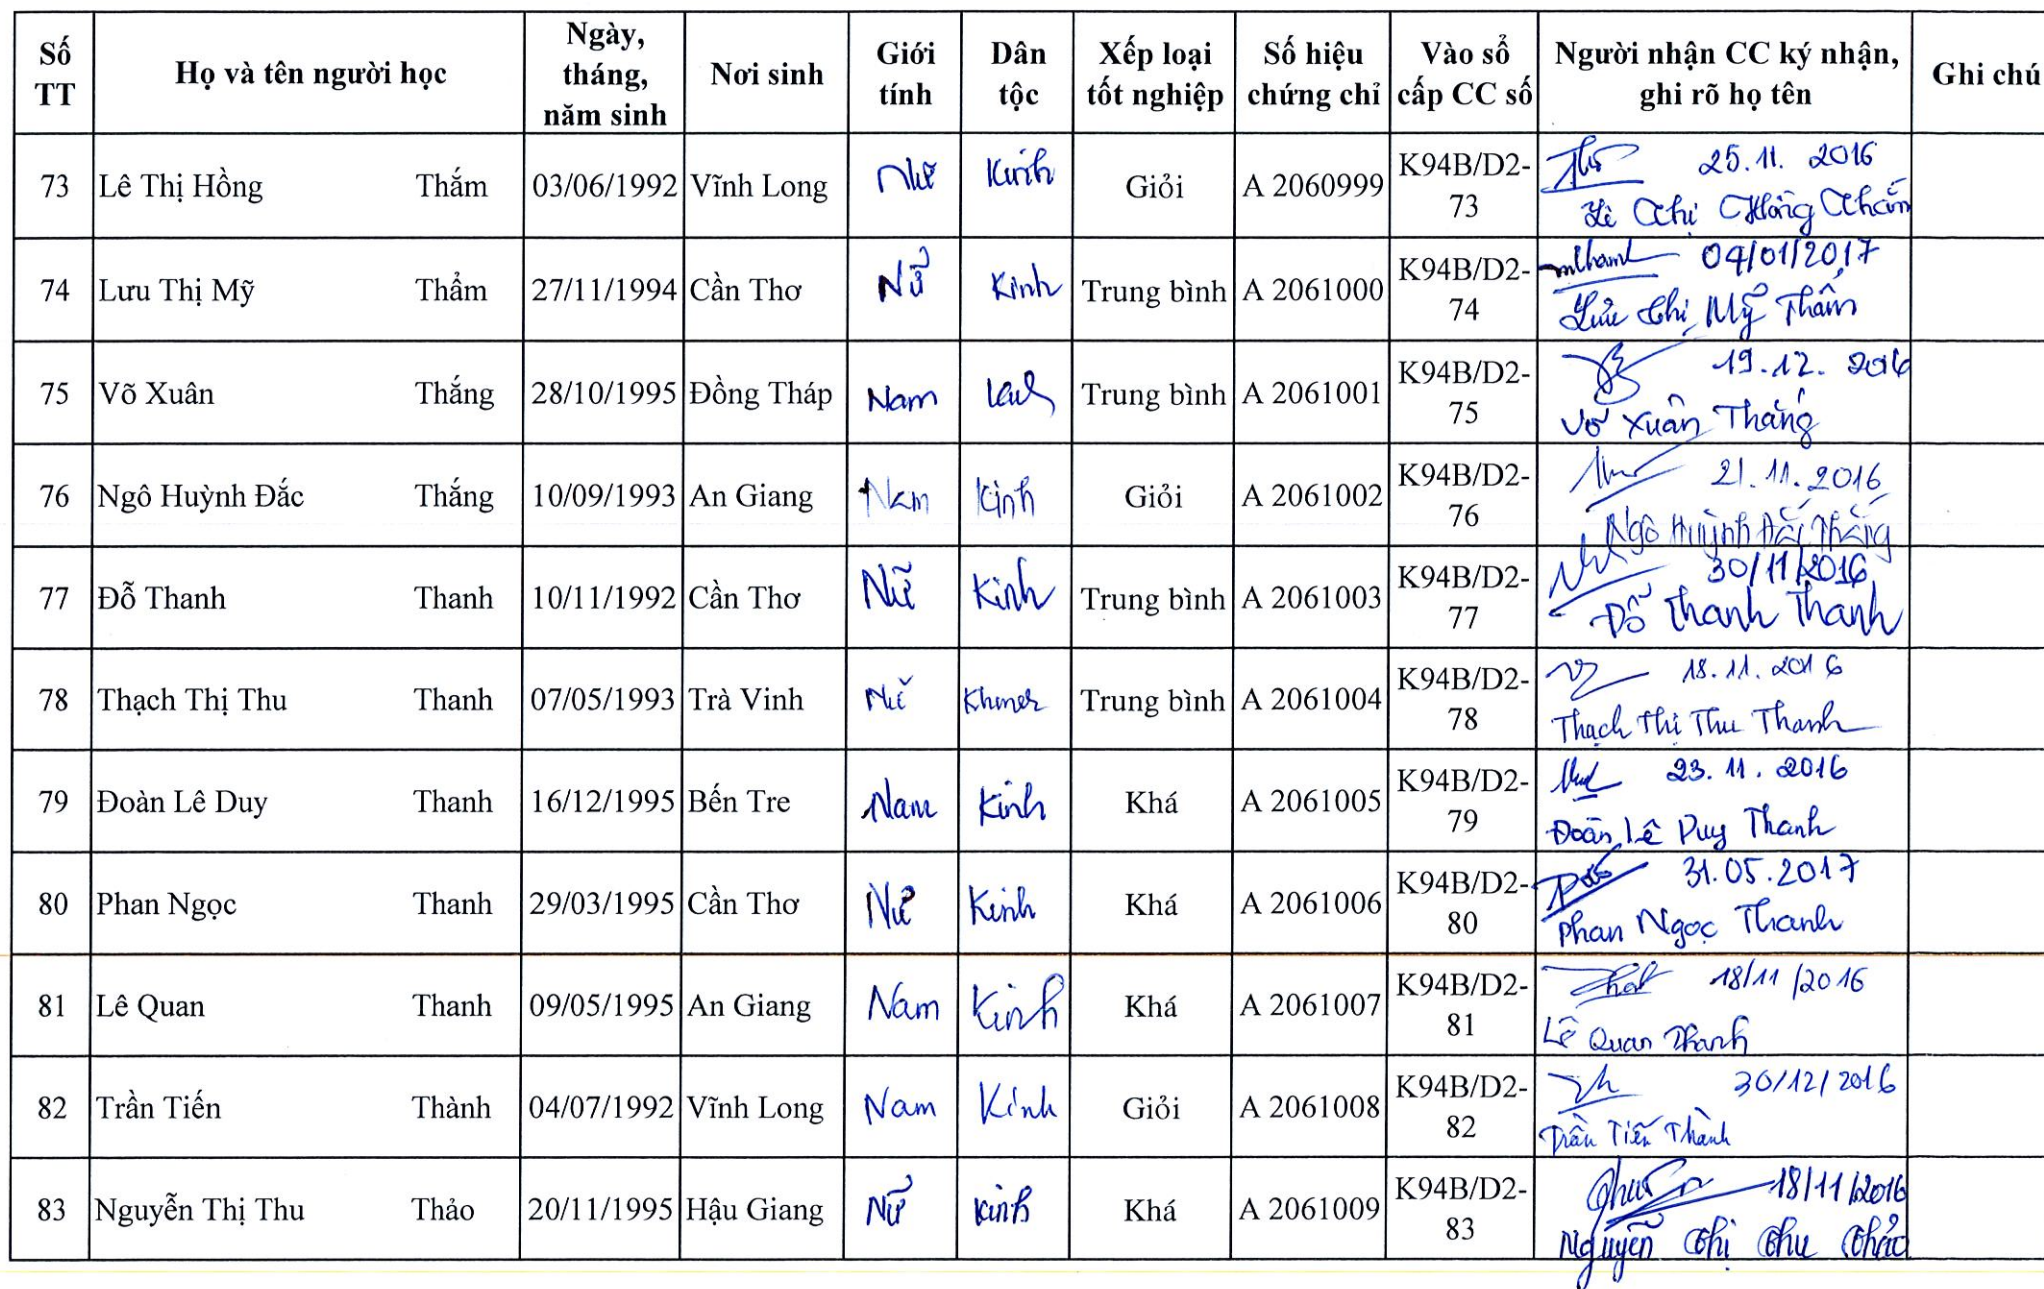 Số TT Họ và tên người học Ngày, tháng, năm sinh Nơi sinh Giới tính Dân tộc Xếp loại tốt nghiệp Số hiệu chứng chỉ Vào sổ cấp CC số Người nhận CC ký nhận, ghi rõ họ tên Ghi chú
73 Lê Thị Hồng Thắm 03/06/1992 Vĩnh Long Nữ Kinh Giỏi A 2060999 K94B/D2-73 25.11.2016
Lê Thị Hồng Thắm
74 Lưu Thị Mỹ Thẩm 27/11/1994 Cần Thơ Nữ Kinh Trung bình A 2061000 K94B/D2-74 04/01/2017
Lưu Thị Mỹ Thẩm
75 Võ Xuân Thắng 28/10/1995 Đồng Tháp Nam Kinh Trung bình A 2061001 K94B/D2-75 19.12.2016
Võ Xuân Thắng
76 Ngô Huỳnh Đắc Thắng 10/09/1993 An Giang Nam Kinh Giỏi A 2061002 K94B/D2-76 21.11.2016
Ngô Huỳnh Đắc Thắng
77 Đỗ Thanh Thanh 10/11/1992 Cần Thơ Nữ Kinh Trung bình A 2061003 K94B/D2-77 30/11/2016
Đỗ Thanh Thanh
78 Thạch Thị Thu Thanh 07/05/1993 Trà Vinh Nữ Khmer Trung bình A 2061004 K94B/D2-78 18.11.2016
Thạch Thị Thu Thanh
79 Đoàn Lê Duy Thanh 16/12/1995 Bến Tre Nam Kinh Khá A 2061005 K94B/D2-79 23.11.2016
Đoàn Lê Duy Thanh
80 Phan Ngọc Thanh 29/03/1995 Cần Thơ Nữ Kinh Khá A 2061006 K94B/D2-80 31.05.2017
Phan Ngọc Thanh
81 Lê Quan Thanh 09/05/1995 An Giang Nam Kinh Khá A 2061007 K94B/D2-81 18/11/2016
Lê Quan Thanh
82 Trần Tiến Thành 04/07/1992 Vĩnh Long Nam Kinh Giỏi A 2061008 K94B/D2-82 30/12/2016
Trần Tiến Thành
83 Nguyễn Thị Thu Thảo 20/11/1995 Hậu Giang Nữ Kinh Khá A 2061009 K94B/D2-83 18/11/2016
Nguyễn Thị Thu Thảo